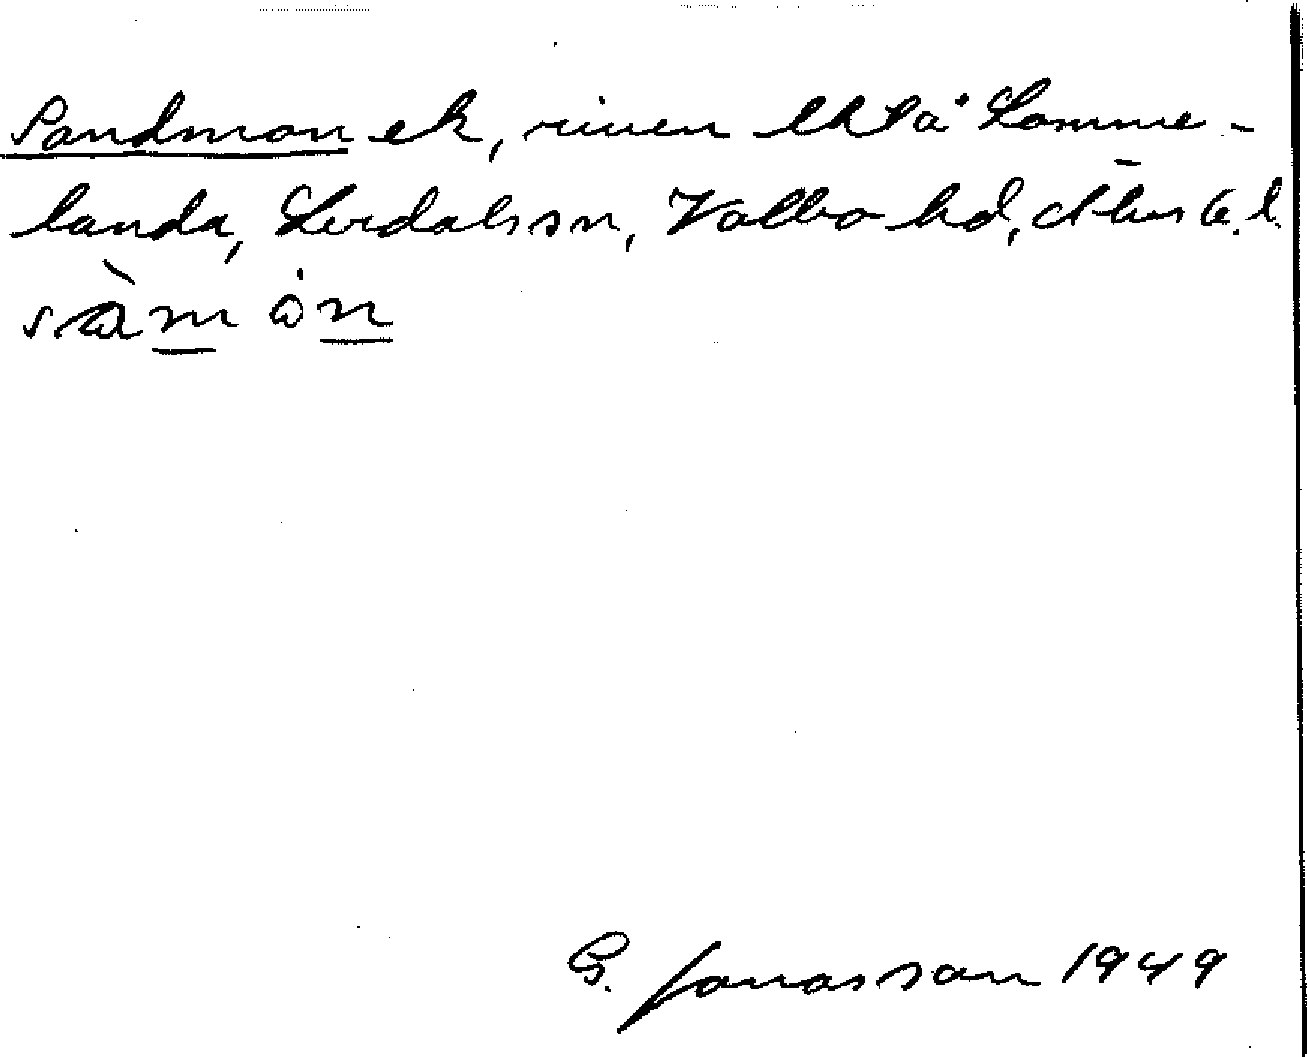 Sandmon ek, riven lht å Lomme-
landa, Lerdals sn, Valbo hd, Älvsb. l.
sàm òn
G. Jonasson 1949